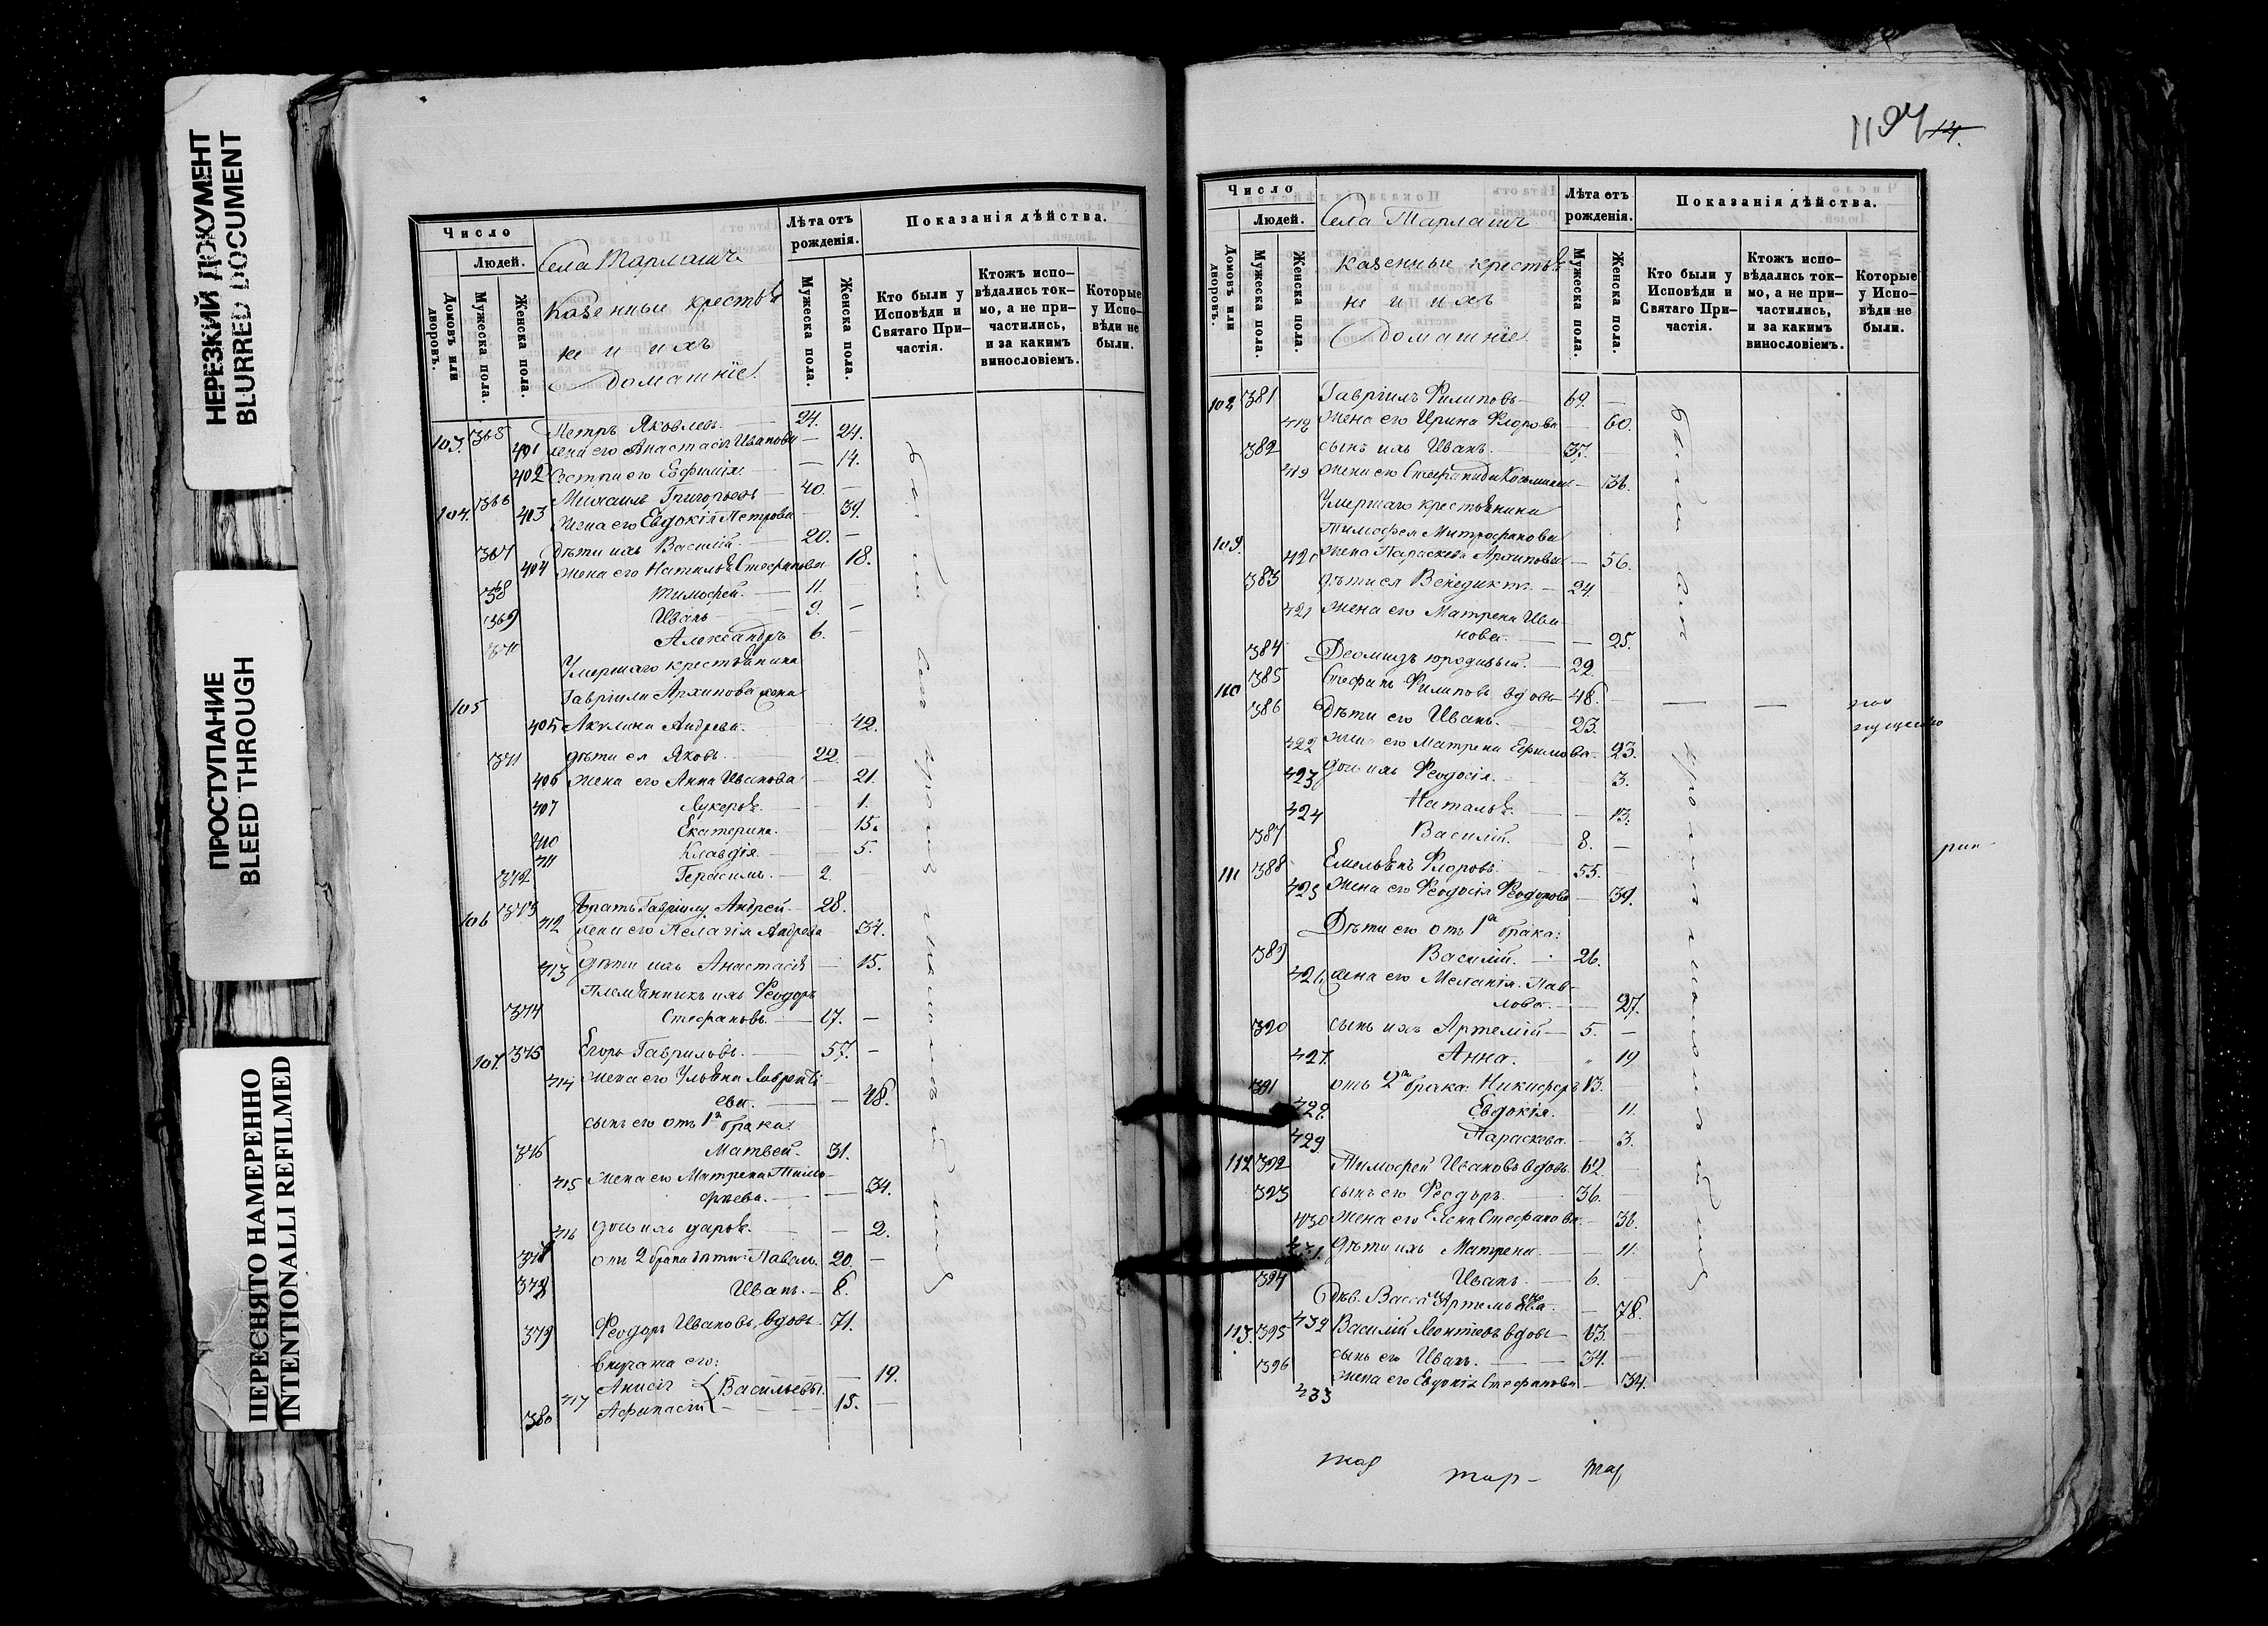 НЕРЕЗКИЙ ДОКУМЕНТ
BLURRED DOCUMENT
ПРОСТУПАНИЕ
BLEED THROUGH
ПЕРЕСНЯТО НАМЕРЕННО
INTENTIONALLI REFILMED
Число
Людей.
Домовъ или дворовъ.
Мужеска пола.
Женска пола.
Села Тарлашъ
Казенные крестьѣ
не и ихъ
домашніе.
Лѣта отъ рожденія.
Мужеска пола.
Женска пола.
Показанія дѣйства.
Кто были у Исповѣди и Святаго Причастія.
Ктожъ исповѣдались токмо, а не причастились, и за какимъ винословіемъ.
Которые у Исповѣди не были.
103. 365 Петръ Яковлевъ. 24.
401 жена его Анастасія Иванова 24.
402 Сестра его Евфимія. 14.
104. 366 Михаилъ Григорьевъ 40.
403 Жена его Евдокія Петрова 39.
367 Дѣти ихъ Василій. 20.
404 Жена его Наталья Стефанова 18.
368 Тимофей. 11.
369 Иванъ 9.
370 Александръ 6.
Умершаго крестьянина
105 Гавріила Архипова жена
405 Акулина Андреева. 42.
371 дѣти ея Яковъ. 22.
406 жена его Анна Иванова 21.
407 Лукерья. 1.
410 Екатерина. 15.
411 Клавдія. 5.
372 Герасимъ. 2.
106 373 Братъ Гавріилу Андрей 28.
412 жена его Пелагія Андреева 34.
413 дѣти ихъ Анастасія 15.
Племянникъ ихъ Феодоръ
374 Стефановъ. 17.
107. 375 Егоръ Гавриловъ. 57.
414 Жена его Ульяна Лаврентіева. 48.
сынъ его отъ 1а брака:
376 Матвей. 31.
415 Жена его Матрена Тимофеева. 34.
416 дочь ихъ Дарья. 2.
отъ 2 брака дѣти: Павелъ. 20.
378 Иванъ. 8.
379 Феодоръ Ивановъ, вдовъ 71.
внучата его:
417 Анисія Васильевы. 19.
380 Афанасій 15.
1194 14.
Число
Людей.
Домовъ или дворовъ.
Мужеска пола.
Женска пола.
Села Тарлашъ
Казенные крестьѣ
не и ихъ
домашніе.
Лѣта отъ рожденія.
Мужеска пола.
Женска пола.
Показанія дѣйства.
Кто были у Исповѣди и Святаго Причастія.
Ктожъ исповѣдались токмо, а не причастились, и за какимъ винословіемъ.
Которые у Исповѣди не были.
381 Гавріилъ Филиповъ 69.
418 Жена его Ирина Флорова 60.
382 сынъ ихъ Иванъ. 37.
419 Жена его Стефанида Косьмина 36.
Умершаго крестьянина
109. Тимофея Митрофанова
420 Жена Параскева Архипова 56.
383 дѣти ея Венедиктъ. 24.
421 жена его Матрена Ива-
нова. 25.
384 Деомидъ юродивый. 22.
110 385 Стефанъ Филиповъ вдовъ 48.
386 Дѣти его Иванъ. 23.
422 жена его Матрена Ефимова. 23.
423 дочь ихъ Феодосія. 3.
424 Наталья. 13.
387 Василій. 8.
111 388 Емельянъ Флоровъ. 55.
425 Жена его Феодосія Феодорова 39.
Дѣти его отъ 1а брака:
389 Василій. 26.
426 жена его Меланія Пав-
лова. 27.
390 сынъ ихъ Артемій 5.
427. Анна. 19
391 отъ 2а брака: Никифоръ 13.
428 Евдокія. 11.
429 Параскева. 3.
112 392 Тимофей Ивановъ вдовъ. 62.
393 сынъ его Феодоръ. 36.
430 Жена его Елена Стефанова 36.
431 дѣти ихъ Матрена. 11.
394 Иванъ. 6.
432 Дѣв. Васса Артемьева. 78.
113. 395 Василій Леонтьевъ вдовъ 63.
396 сынъ его Иванъ. 34.
433 Жена его Евдокія Стефанова 34.